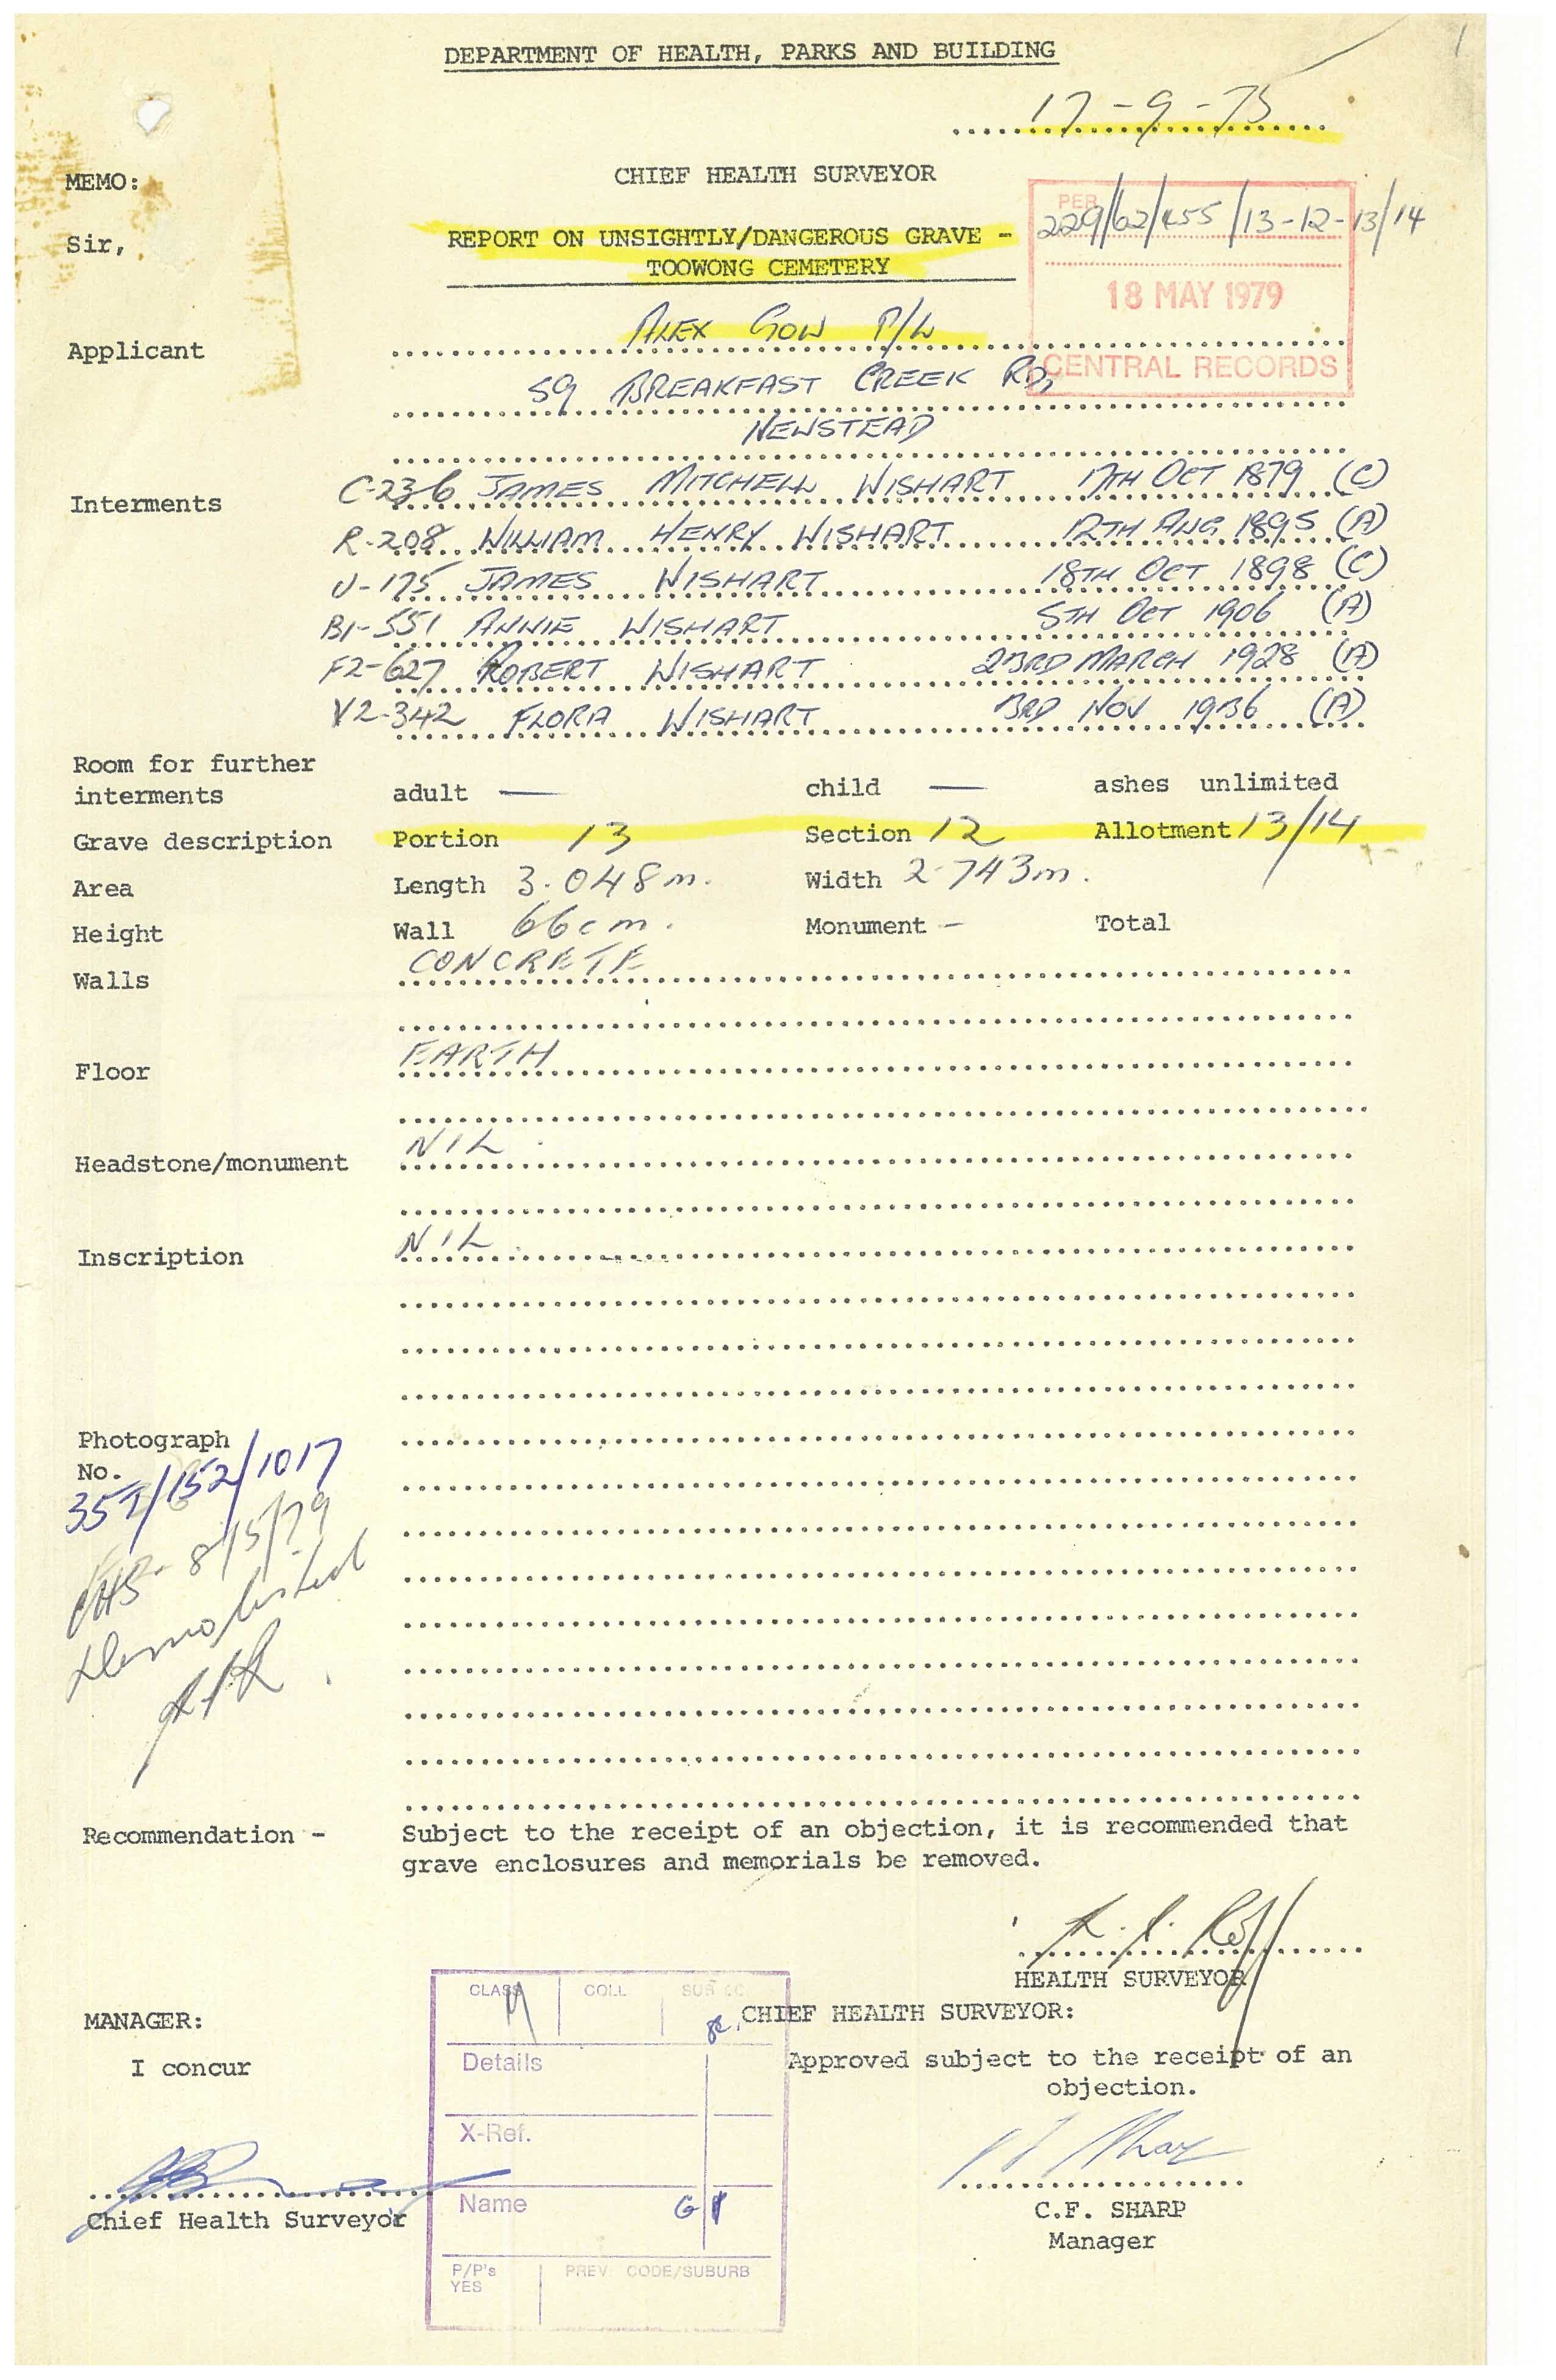 DEPARTMENT OF HEALTH, PARKS AND BUILDING
17-9-75
MEMO:
CHIEF HEALTH SURVEYOR
Sir,
REPORT ON UNSIGHTLY/DANGEROUS GRAVE -
TOOWONG CEMETERY
PER
229/62/455/13-12-13/14
18 MAY 1979
CENTRAL RECORDS
Applicant ALEX GOW P/L
59 BREAKFAST CREEK RD,
NEWSTEAD
Interments C-236 JAMES MITCHELL WISHART 17TH OCT 1879 (C)
R-208 WILLIAM HENRY WISHART 12TH AUG 1895 (A)
U-175 JAMES WISHART 18TH OCT 1898 (C)
B1-551 ANNIE WISHART 5TH OCT 1906 (A)
F2-627 ROBERT WISHART 23RD MARCH 1928 (A)
V2-342 FLORA WISHART 3RD NOV 1936 (A)
Room for further
interments adult — child — ashes unlimited
Grave description Portion 13 Section 12 Allotment 13/14
Area Length 3.048m. Width 2.743m.
Height Wall 66cm. Monument - Total
Walls CONCRETE
Floor EARTH
Headstone/monument NIL
Inscription NIL
Photograph
No.
/152/1017
CHS - 8/5/79
Demolished
Recommendation - Subject to the receipt of an objection, it is recommended that
grave enclosures and memorials be removed.
HEALTH SURVEYOR
CLASS COLL SUB
MANAGER: CHIEF HEALTH SURVEYOR:
Details
I concur Approved subject to the receipt of an
objection.
X-Ref.
Name G
Chief Health Surveyor C.F. SHARP
Manager
P/P's
YES
PREV. CODE/SUBURB